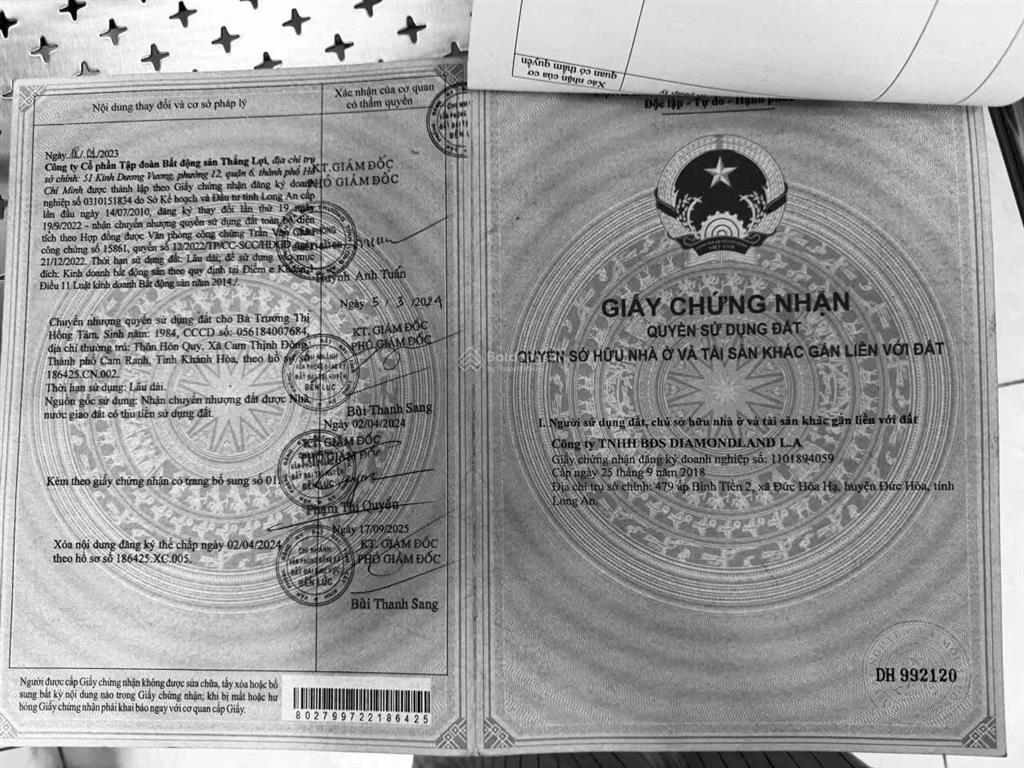 Xác nhận của cơ
quan có thẩm quyền
Nội dung thay đổi và cơ sở pháp lý
Xác nhận của cơ quan
có thẩm quyền
Ngày 18/01/2023
Công ty Cổ phần Tập đoàn Bất động sản Thắng Lợi, địa chỉ trụ
sở chính: 51 Kinh Dương Vương, phường 12, quận 6, thành phố Hồ
Chí Minh được thành lập theo Giấy chứng nhận đăng ký doanh
nghiệp số 0310151834 do Sở Kế hoạch và Đầu tư tỉnh Long An cấp
lần đầu ngày 14/07/2010, đăng ký thay đổi lần thứ 19 ngày
19/9/2022 - nhận chuyển nhượng quyền sử dụng đất toàn bộ diện
tích theo Hợp đồng được Văn phòng công chứng Trần Văn
công chứng số 15861, quyển số 12/2022/TP/CC-SCC/HĐGD ngày
21/12/2022. Thời hạn sử dụng đất: Lâu dài; để sử dụng vào mục
đích: Kinh doanh bất động sản theo quy định tại Điểm e Khoản 1
Điều 11 Luật kinh doanh Bất động sản năm 2014./.
KT.GIÁM ĐỐC
PHÓ GIÁM ĐỐC
Huỳnh Anh Tuấn
Ngày 5/3/2024
Chuyển nhượng quyền sử dụng đất cho Bà Trương Thị
Hồng Tâm, Sinh năm: 1984, CCCD số: 056184007684,
địa chỉ thường trú: Thôn Hòn Quy, Xã Cam Thịnh Đông,
Thành phố Cam Ranh, Tỉnh Khánh Hòa, theo hồ sơ số
186425.CN.002.
Thời hạn sử dụng: Lâu dài.
Nguồn gốc sử dụng: Nhận chuyển nhượng đất được Nhà
nước giao đất có thu tiền sử dụng đất.
KT. GIÁM ĐỐC
PHÓ GIÁM ĐỐC
CHI NHÁNH
VĂN PHÒNG ĐĂNG KÝ
ĐẤT ĐAI TẠI HUYỆN
BẾN LỨC
Bùi Thanh Sang
Ngày 02/04/2024
KT. GIÁM ĐỐC
PHÓ GIÁM ĐỐC
Kèm theo giấy chứng nhận có trang bổ sung số 01.
Phạm Thị Quyển
Ngày 17/09/2025
Xóa nội dung đăng ký thế chấp ngày 02/04/2024
theo hồ sơ số 186425.XC.005.
KT. GIÁM ĐỐC
PHÓ GIÁM ĐỐC
CHI NHÁNH
BẾN LỨC
Bùi Thanh Sang
Người được cấp Giấy chứng nhận không được sửa chữa, tẩy xóa hoặc bổ
sung bất kỳ nội dung nào trong Giấy chứng nhận; khi bị mất hoặc hư
hỏng Giấy chứng nhận phải khai báo ngay với cơ quan cấp Giấy.
802799722186425
Độc lập - Tự do - Hạnh phúc
VIỆT NAM
GIẤY CHỨNG NHẬN
QUYỀN SỬ DỤNG ĐẤT
QUYỀN SỞ HỮU NHÀ Ở VÀ TÀI SẢN KHÁC GẮN LIỀN VỚI ĐẤT
I. Người sử dụng đất, chủ sở hữu nhà ở và tài sản khác gắn liền với đất
Công ty TNHH BĐS DIAMONDLAND L.A
Giấy chứng nhận đăng ký doanh nghiệp số: 1101894059
Cấp ngày 25 tháng 9 năm 2018
Địa chỉ trụ sở chính: 479 ấp Bình Tiền 2, xã Đức Hòa Hạ, huyện Đức Hòa, tỉnh
Long An.
DH 992120